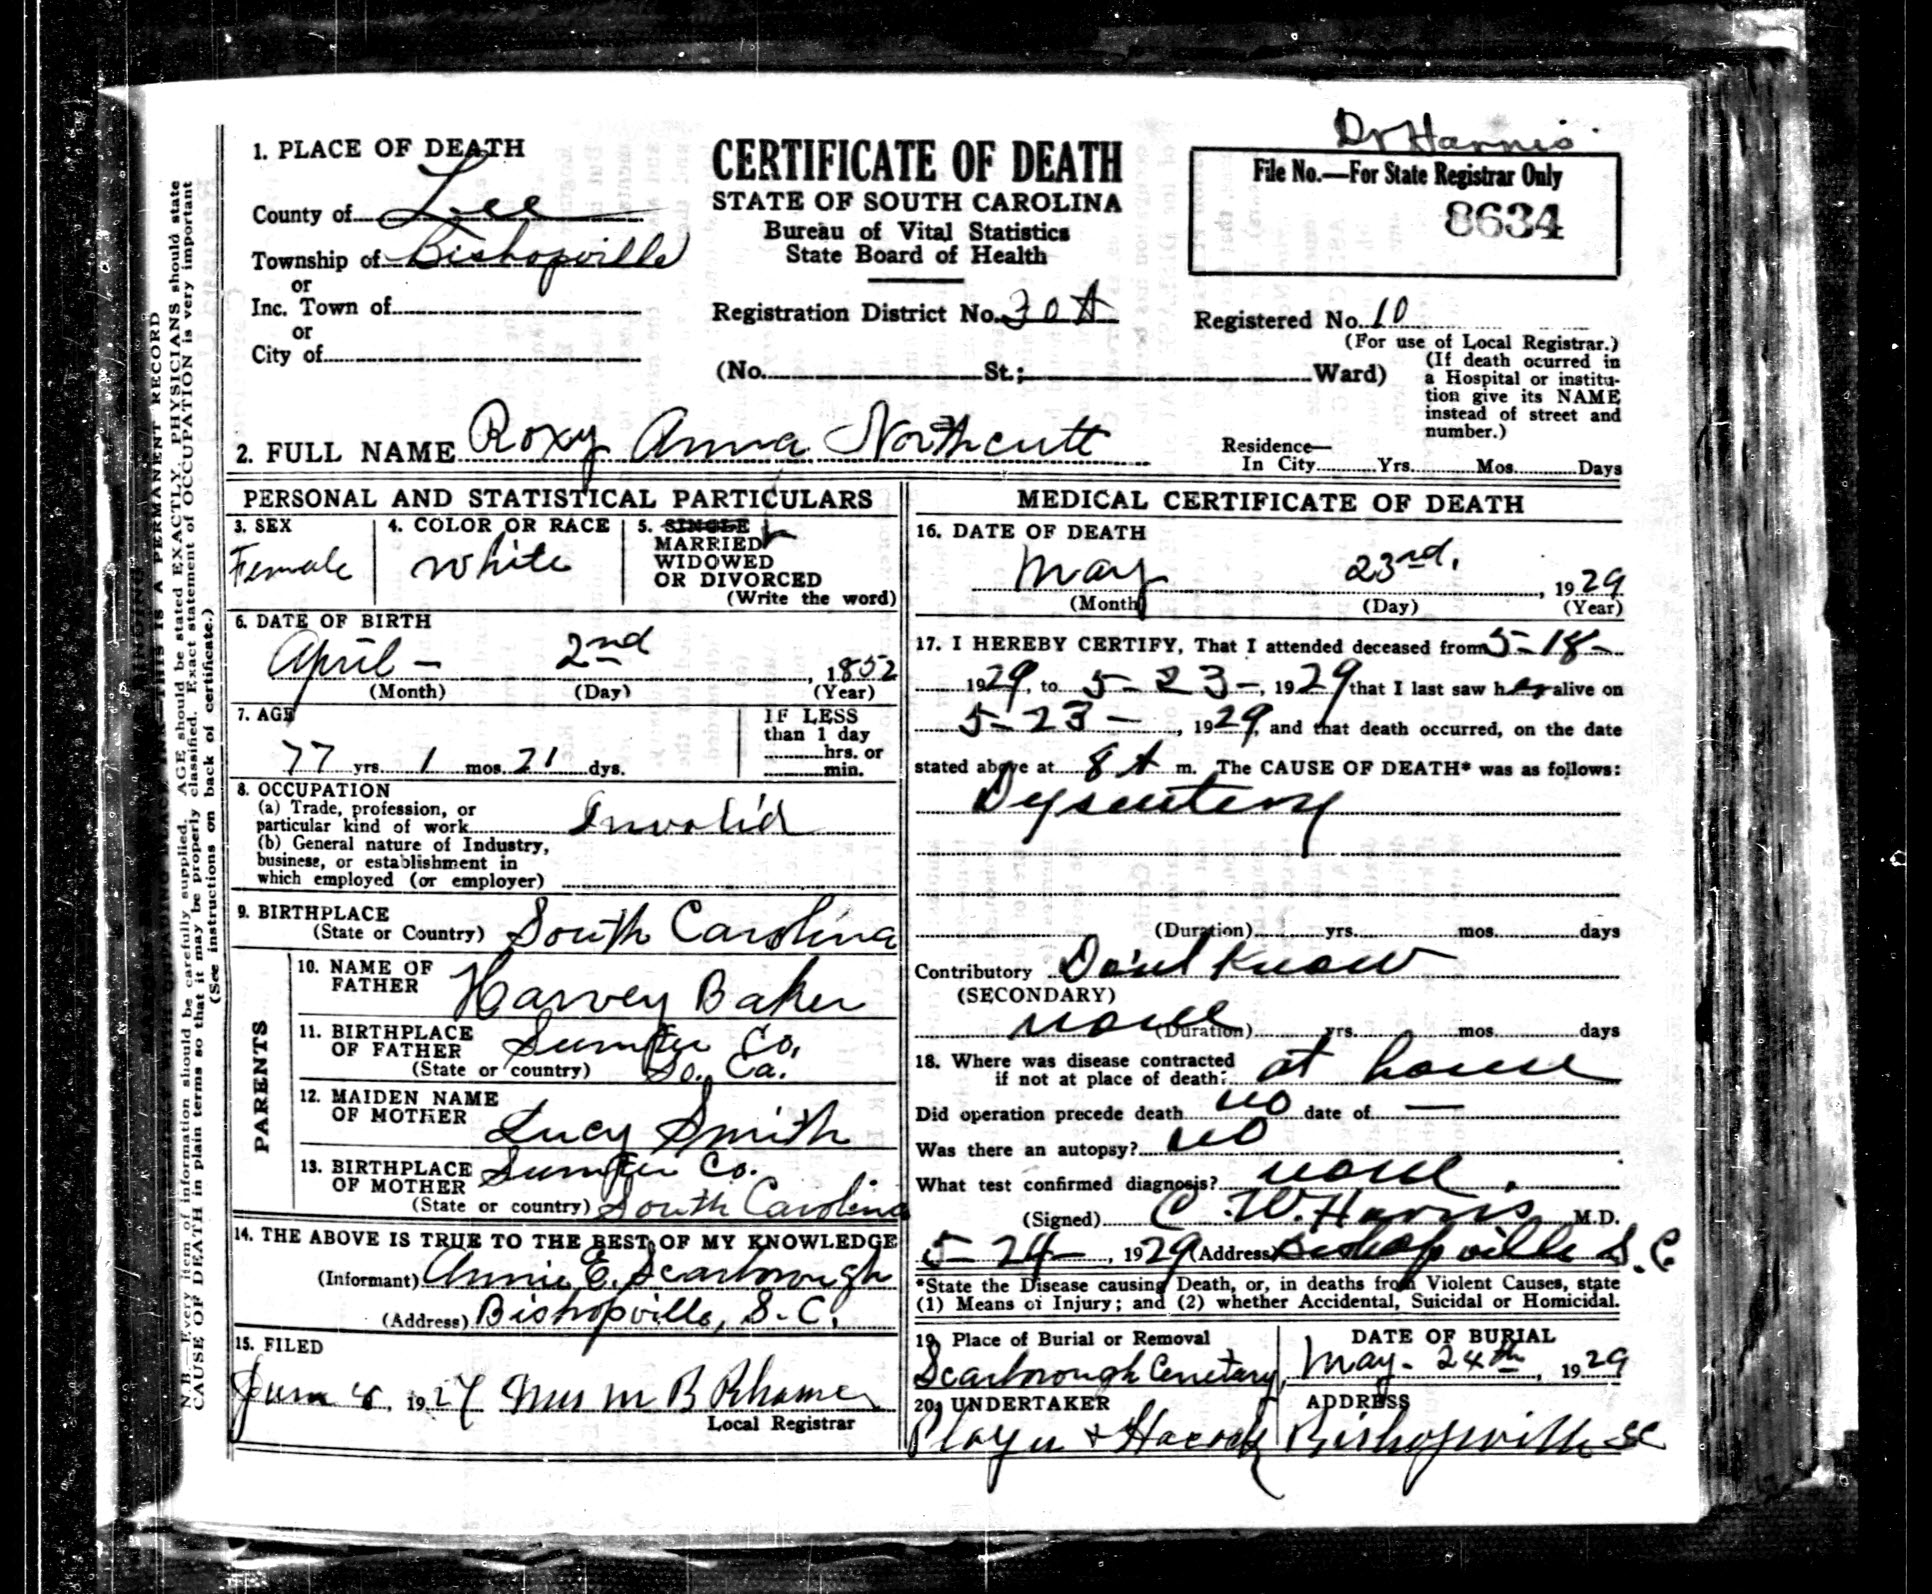 Dr Harris
1. PLACE OF DEATH
County of Lee
Township of Bishopville
or
Inc. Town of
or
City of
CERTIFICATE OF DEATH
STATE OF SOUTH CAROLINA
Bureau of Vital Statistics
State Board of Health
Registration District No. 30A
(No. St.; Ward)
File No.—For State Registrar Only
8634
Registered No. 10
(For use of Local Registrar.)
(If death ocurred in
a Hospital or institu-
tion give its NAME
instead of street and
number.)
2. FULL NAME Roxy Anna Northcutt
Residence—
In City Yrs. Mos. Days
PERSONAL AND STATISTICAL PARTICULARS
3. SEX
Female
4. COLOR OR RACE
White
5. SINGLE
MARRIED
WIDOWED
OR DIVORCED
(Write the word)
6. DATE OF BIRTH
April - 2nd, 1852
(Month) (Day) (Year)
7. AGE
77 yrs. 1 mos. 21 dys.
IF LESS
than 1 day
hrs. or
min.
8. OCCUPATION
(a) Trade, profession, or
particular kind of work Invalid
(b) General nature of Industry,
business, or establishment in
which employed (or employer)
9. BIRTHPLACE
(State or Country) South Carolina
PARENTS
10. NAME OF
FATHER Harvey Baker
11. BIRTHPLACE
OF FATHER Sumter Co.
(State or country) So. Ca.
12. MAIDEN NAME
OF MOTHER Lucy Smith
13. BIRTHPLACE
OF MOTHER Sumter Co.
(State or country) South Carolina
14. THE ABOVE IS TRUE TO THE BEST OF MY KNOWLEDGE
(Informant) Annie E. Scarborough
(Address) Bishopville, S.C.
15. FILED
June, 192 Mrs M B Rhame
Local Registrar
MEDICAL CERTIFICATE OF DEATH
16. DATE OF DEATH
May 23rd, 1929
(Month) (Day) (Year)
17. I HEREBY CERTIFY, That I attended deceased from 5-18-
1929, to 5-23-, 1929 that I last saw her alive on
5-23-, 1929, and that death occurred, on the date
stated above at 8 A m. The CAUSE OF DEATH* was as follows:
Dysentery
(Duration) yrs. mos. days
Contributory Don't Know
(SECONDARY)
none (Duration) yrs. mos. days
18. Where was disease contracted
if not at place of death? at house
Did operation precede death no date of —
Was there an autopsy? no
What test confirmed diagnosis? none.
(Signed) C. W. Harris M.D.
5-24-, 1929 (Address) Bishopville S.C.
*State the Disease causing Death, or, in deaths from Violent Causes, state
(1) Means of Injury; and (2) whether Accidental, Suicidal or Homicidal.
19. Place of Burial or Removal
Scarborough Cemetary
DATE OF BURIAL
May. 24th, 1929
20. UNDERTAKER
ADDRESS
Bishopville SC
THIS IS A PERMANENT RECORD
N.B.—Every item of information should be carefully supplied. AGE should be stated EXACTLY. PHYSICIANS should state
CAUSE OF DEATH in plain terms so that it may be properly classified. Exact statement of OCCUPATION is very important
(See instructions on back of certificate.)